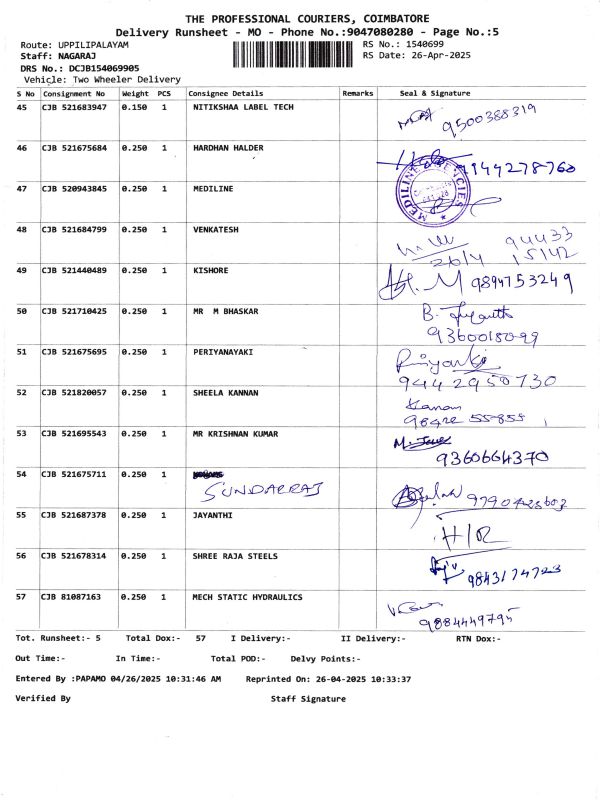 THE PROFESSIONAL COURIERS, COIMBATORE
Delivery Runsheet - MO - Phone No.:9047080280 - Page No.:5
Route: UPPILIPALAYAM RS No.: 1540699
Staff: NAGARAJ RS Date: 26-Apr-2025
DRS No.: DCJB154069905
Vehicle: Two Wheeler Delivery
S No Consignment No Weight PCS Consignee Details Remarks Seal & Signature
45 CJB 521683947 0.150 1 NITIKSHAA LABEL TECH 9500388319
46 CJB 521675684 0.250 1 HARDHAN HALDER 9144278760
47 CJB 520943845 0.250 1 MEDILINE MEDILINE AGENCIES
48 CJB 521684799 0.250 1 VENKATESH 94433
26/4 15142
49 CJB 521440489 0.250 1 KISHORE 9894753249
50 CJB 521710425 0.250 1 MR M BHASKAR B.
51 CJB 521675695 0.250 1 PERIYANAYAKI Priyanka
9442950730
52 CJB 521820057 0.250 1 SHEELA KANNAN Kannan
53 CJB 521695543 0.250 1 MR KRISHNAN KUMAR
9360664370
54 CJB 521675711 0.250 1 SUNDARRAJ
55 CJB 521687378 0.250 1 JAYANTHI H/R
56 CJB 521678314 0.250 1 SHREE RAJA STEELS 9843174723
57 CJB 81087163 0.250 1 MECH STATIC HYDRAULICS
9884449795
Tot. Runsheet:- 5 Total Dox:- 57 I Delivery:- II Delivery:- RTN Dox:-
Out Time:- In Time:- Total POD:- Delvy Points:-
Entered By :PAPAMO 04/26/2025 10:31:46 AM Reprinted On: 26-04-2025 10:33:37
Verified By Staff Signature